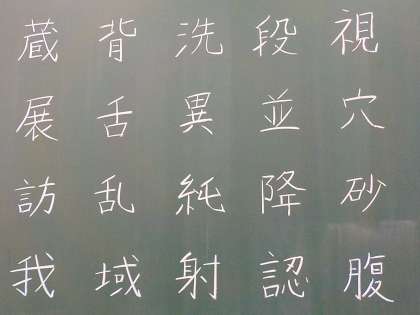 蔵 背 洗 段 視
展 舌 異 並 穴
訪 乱 純 降 砂
我 域 射 認 腹